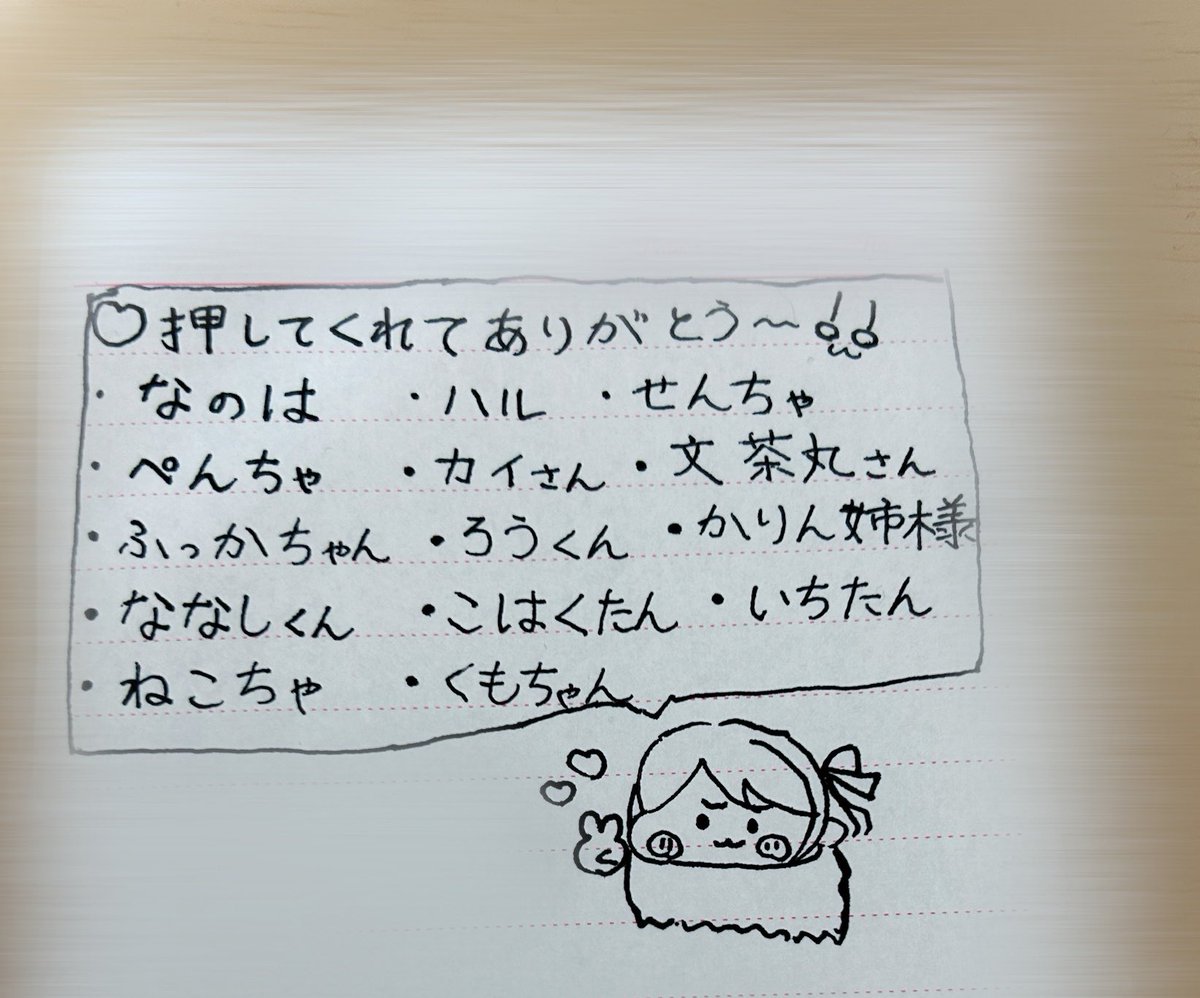 ♡押してくれてありがとう〜
・なのは ・ハル ・せんちゃ
・ぺんちゃ ・カイさん ・文茶丸さん
・ふっかちゃん ・ろうくん ・かりん姉様
・ななしくん ・こはくたん ・いちたん
・ねこちゃ ・くもちゃん